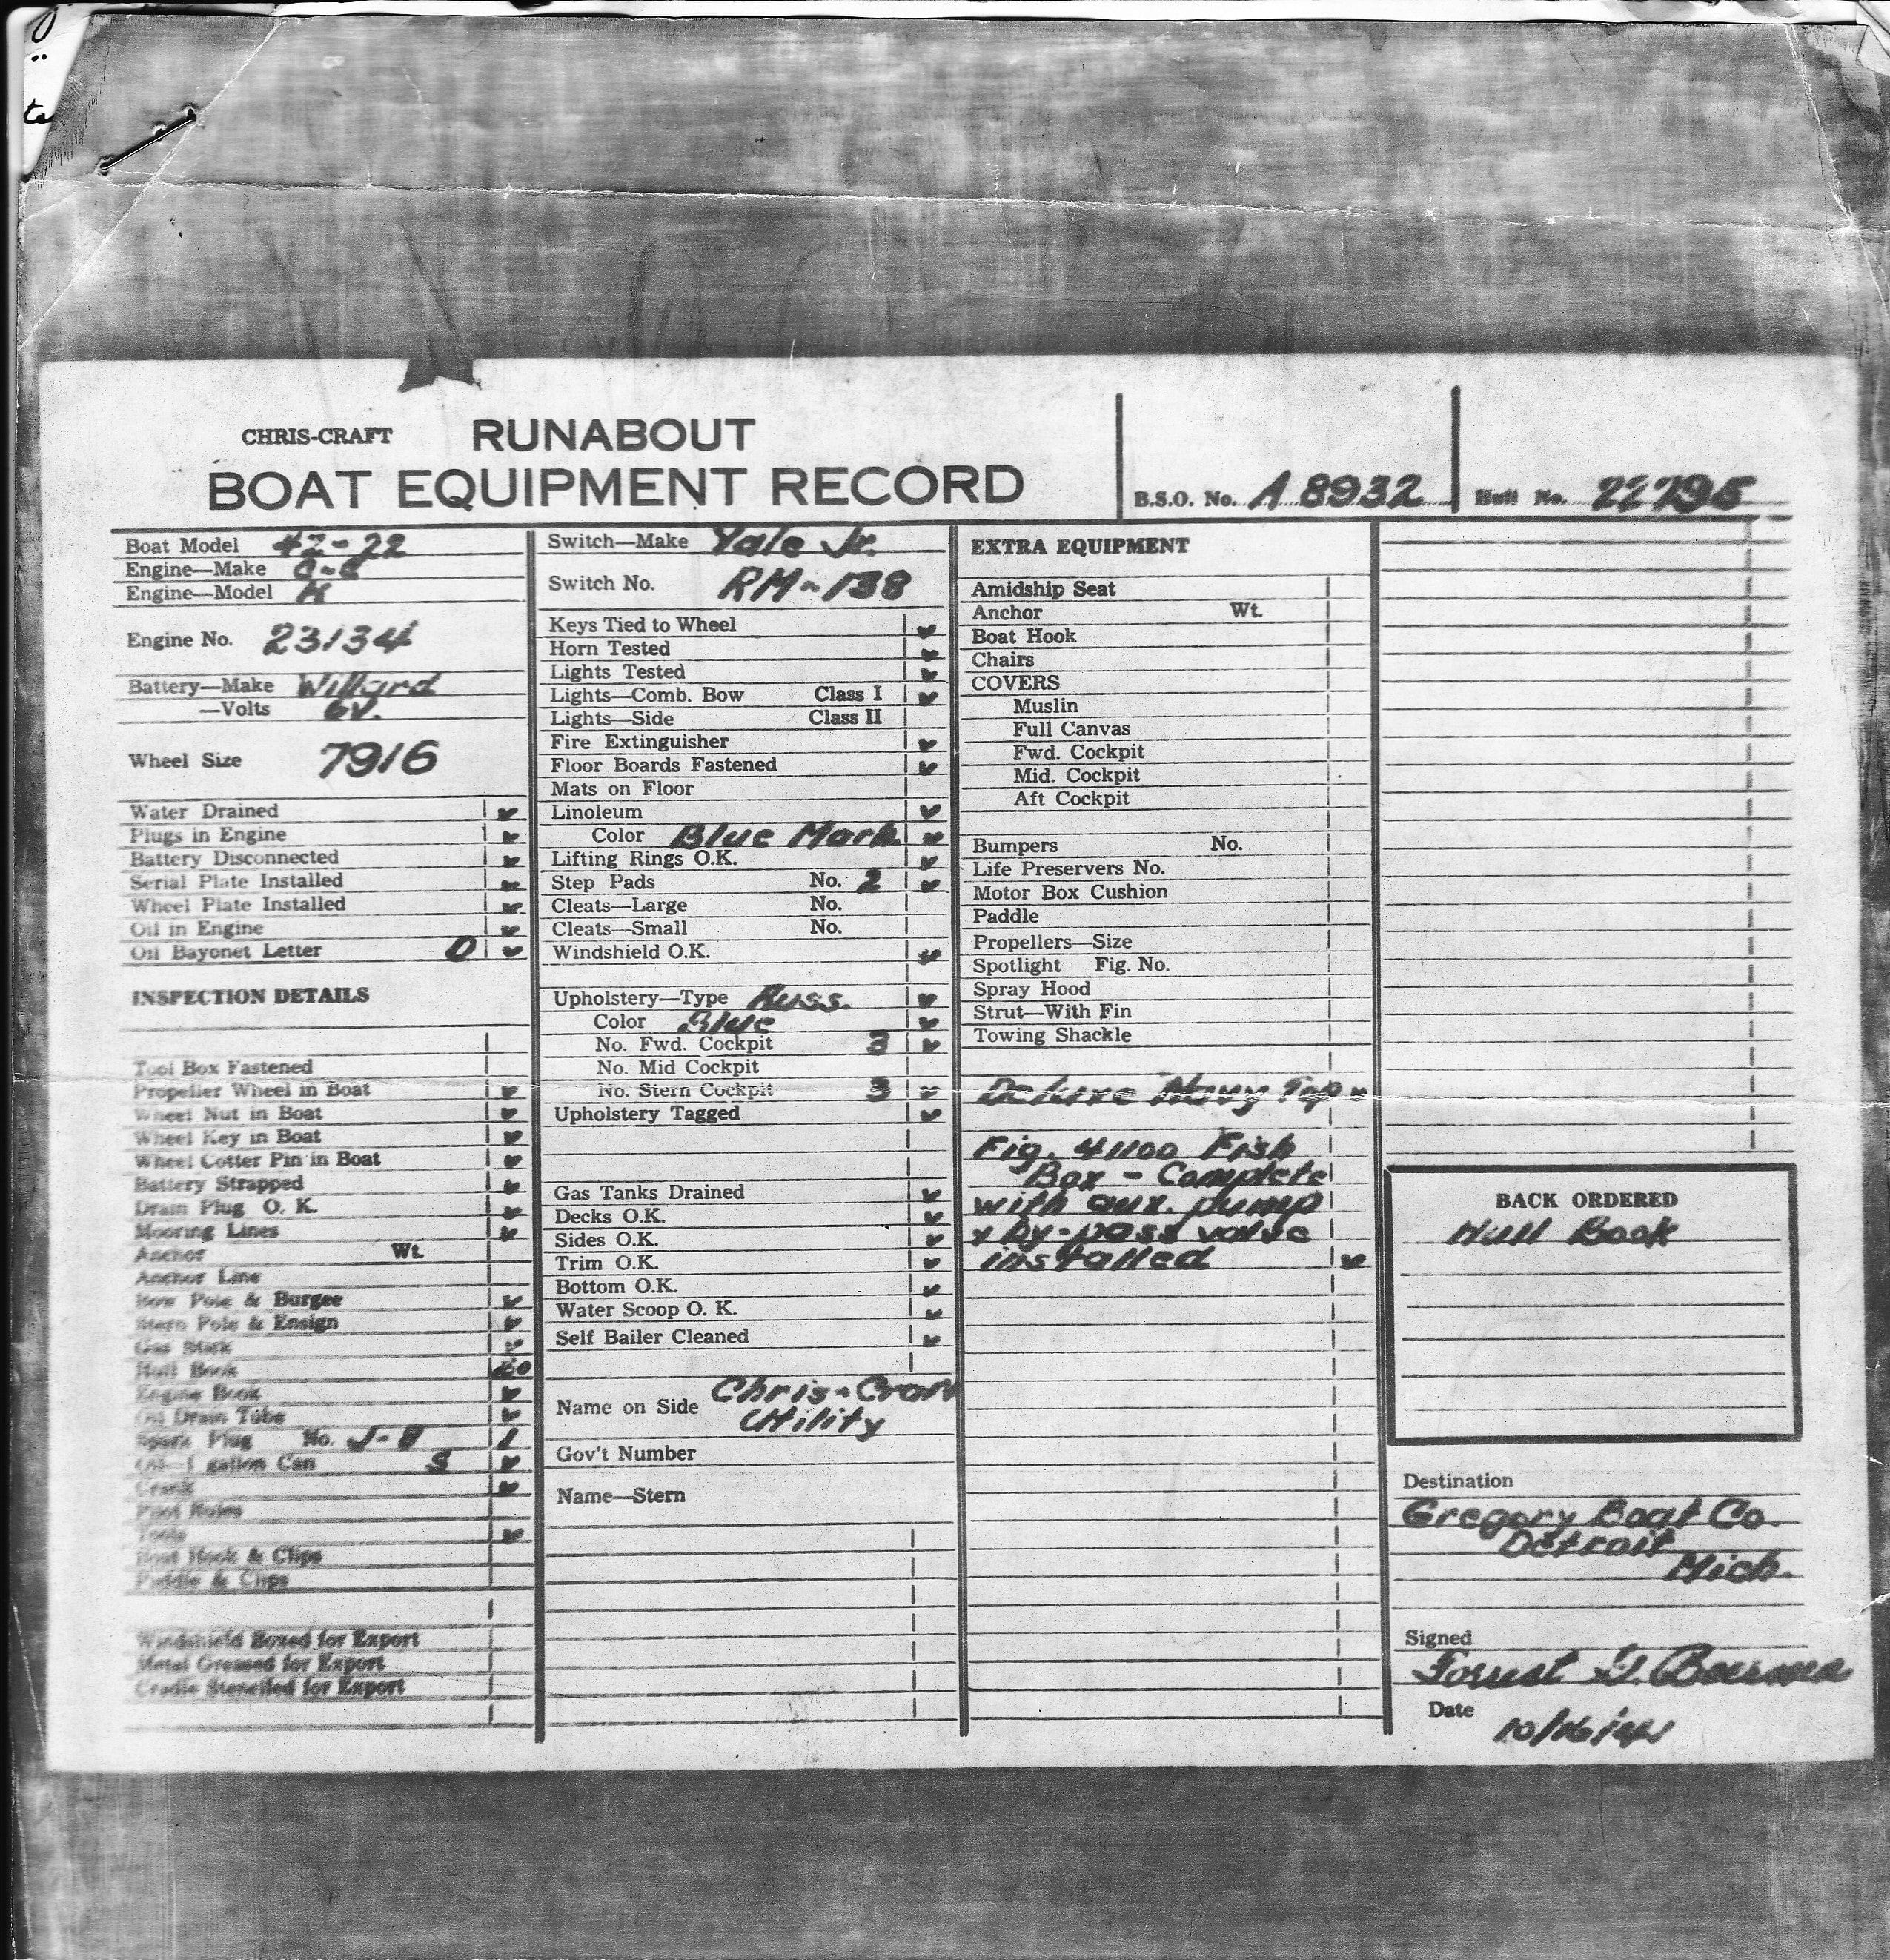 te
CHRIS-CRAFT RUNABOUT
BOAT EQUIPMENT RECORD
B.S.O. No. A 8932 Hull No. 22795
Boat Model 42-22
Engine—Make C-C
Engine—Model K
Engine No. 23134
Battery—Make Willard
—Volts 6V.
Wheel Size 7916
Water Drained
Plugs in Engine
Battery Disconnected
Serial Plate Installed
Wheel Plate Installed
Oil in Engine
Oil Bayonet Letter O
INSPECTION DETAILS
Tool Box Fastened
Propeller Wheel in Boat
Wheel Nut in Boat
Wheel Key in Boat
Wheel Cotter Pin in Boat
Battery Strapped
Drain Plug O. K.
Mooring Lines
Anchor Wt.
Anchor Line
Bow Pole & Burgee
Stern Pole & Ensign
Gas Stick
Hull Book BO
Engine Book
Oil Drain Tube
Spark Plug No. J-8 1
Oil—1 gallon Can S
Crank
Pilot Rules
Tools
Boat Hook & Clips
Paddle & Clips
Windshield Boxed for Export
Metal Greased for Export
Cradle Stenciled for Export
Switch—Make Yale Jr.
Switch No. RM-138
Keys Tied to Wheel
Horn Tested
Lights Tested
Lights—Comb. Bow Class I
Lights—Side Class II
Fire Extinguisher
Floor Boards Fastened
Mats on Floor
Linoleum
Color Blue Marb.
Lifting Rings O.K.
Step Pads No. 2
Cleats—Large No.
Cleats—Small No.
Windshield O.K.
Upholstery—Type Russ.
Color Blue
No. Fwd. Cockpit 3
No. Mid Cockpit
No. Stern Cockpit 3
Upholstery Tagged
Gas Tanks Drained
Decks O.K.
Sides O.K.
Trim O.K.
Bottom O.K.
Water Scoop O. K.
Self Bailer Cleaned
Name on Side Chris-Craft
Utility
Gov't Number
Name—Stern
EXTRA EQUIPMENT
Amidship Seat
Anchor Wt.
Boat Hook
Chairs
COVERS
Muslin
Full Canvas
Fwd. Cockpit
Mid. Cockpit
Aft Cockpit
Bumpers No.
Life Preservers No.
Motor Box Cushion
Paddle
Propellers—Size
Spotlight Fig. No.
Spray Hood
Strut—With Fin
Towing Shackle
Deluxe Navy Top
Fig. 41100 Fish
Box - Complete
with aux. pump
& by-pass valve
installed
BACK ORDERED
Hull Book
Destination
Gregory Boat Co.
Detroit
Mich.
Signed
Forrest D. Boersma
Date 10/16/41